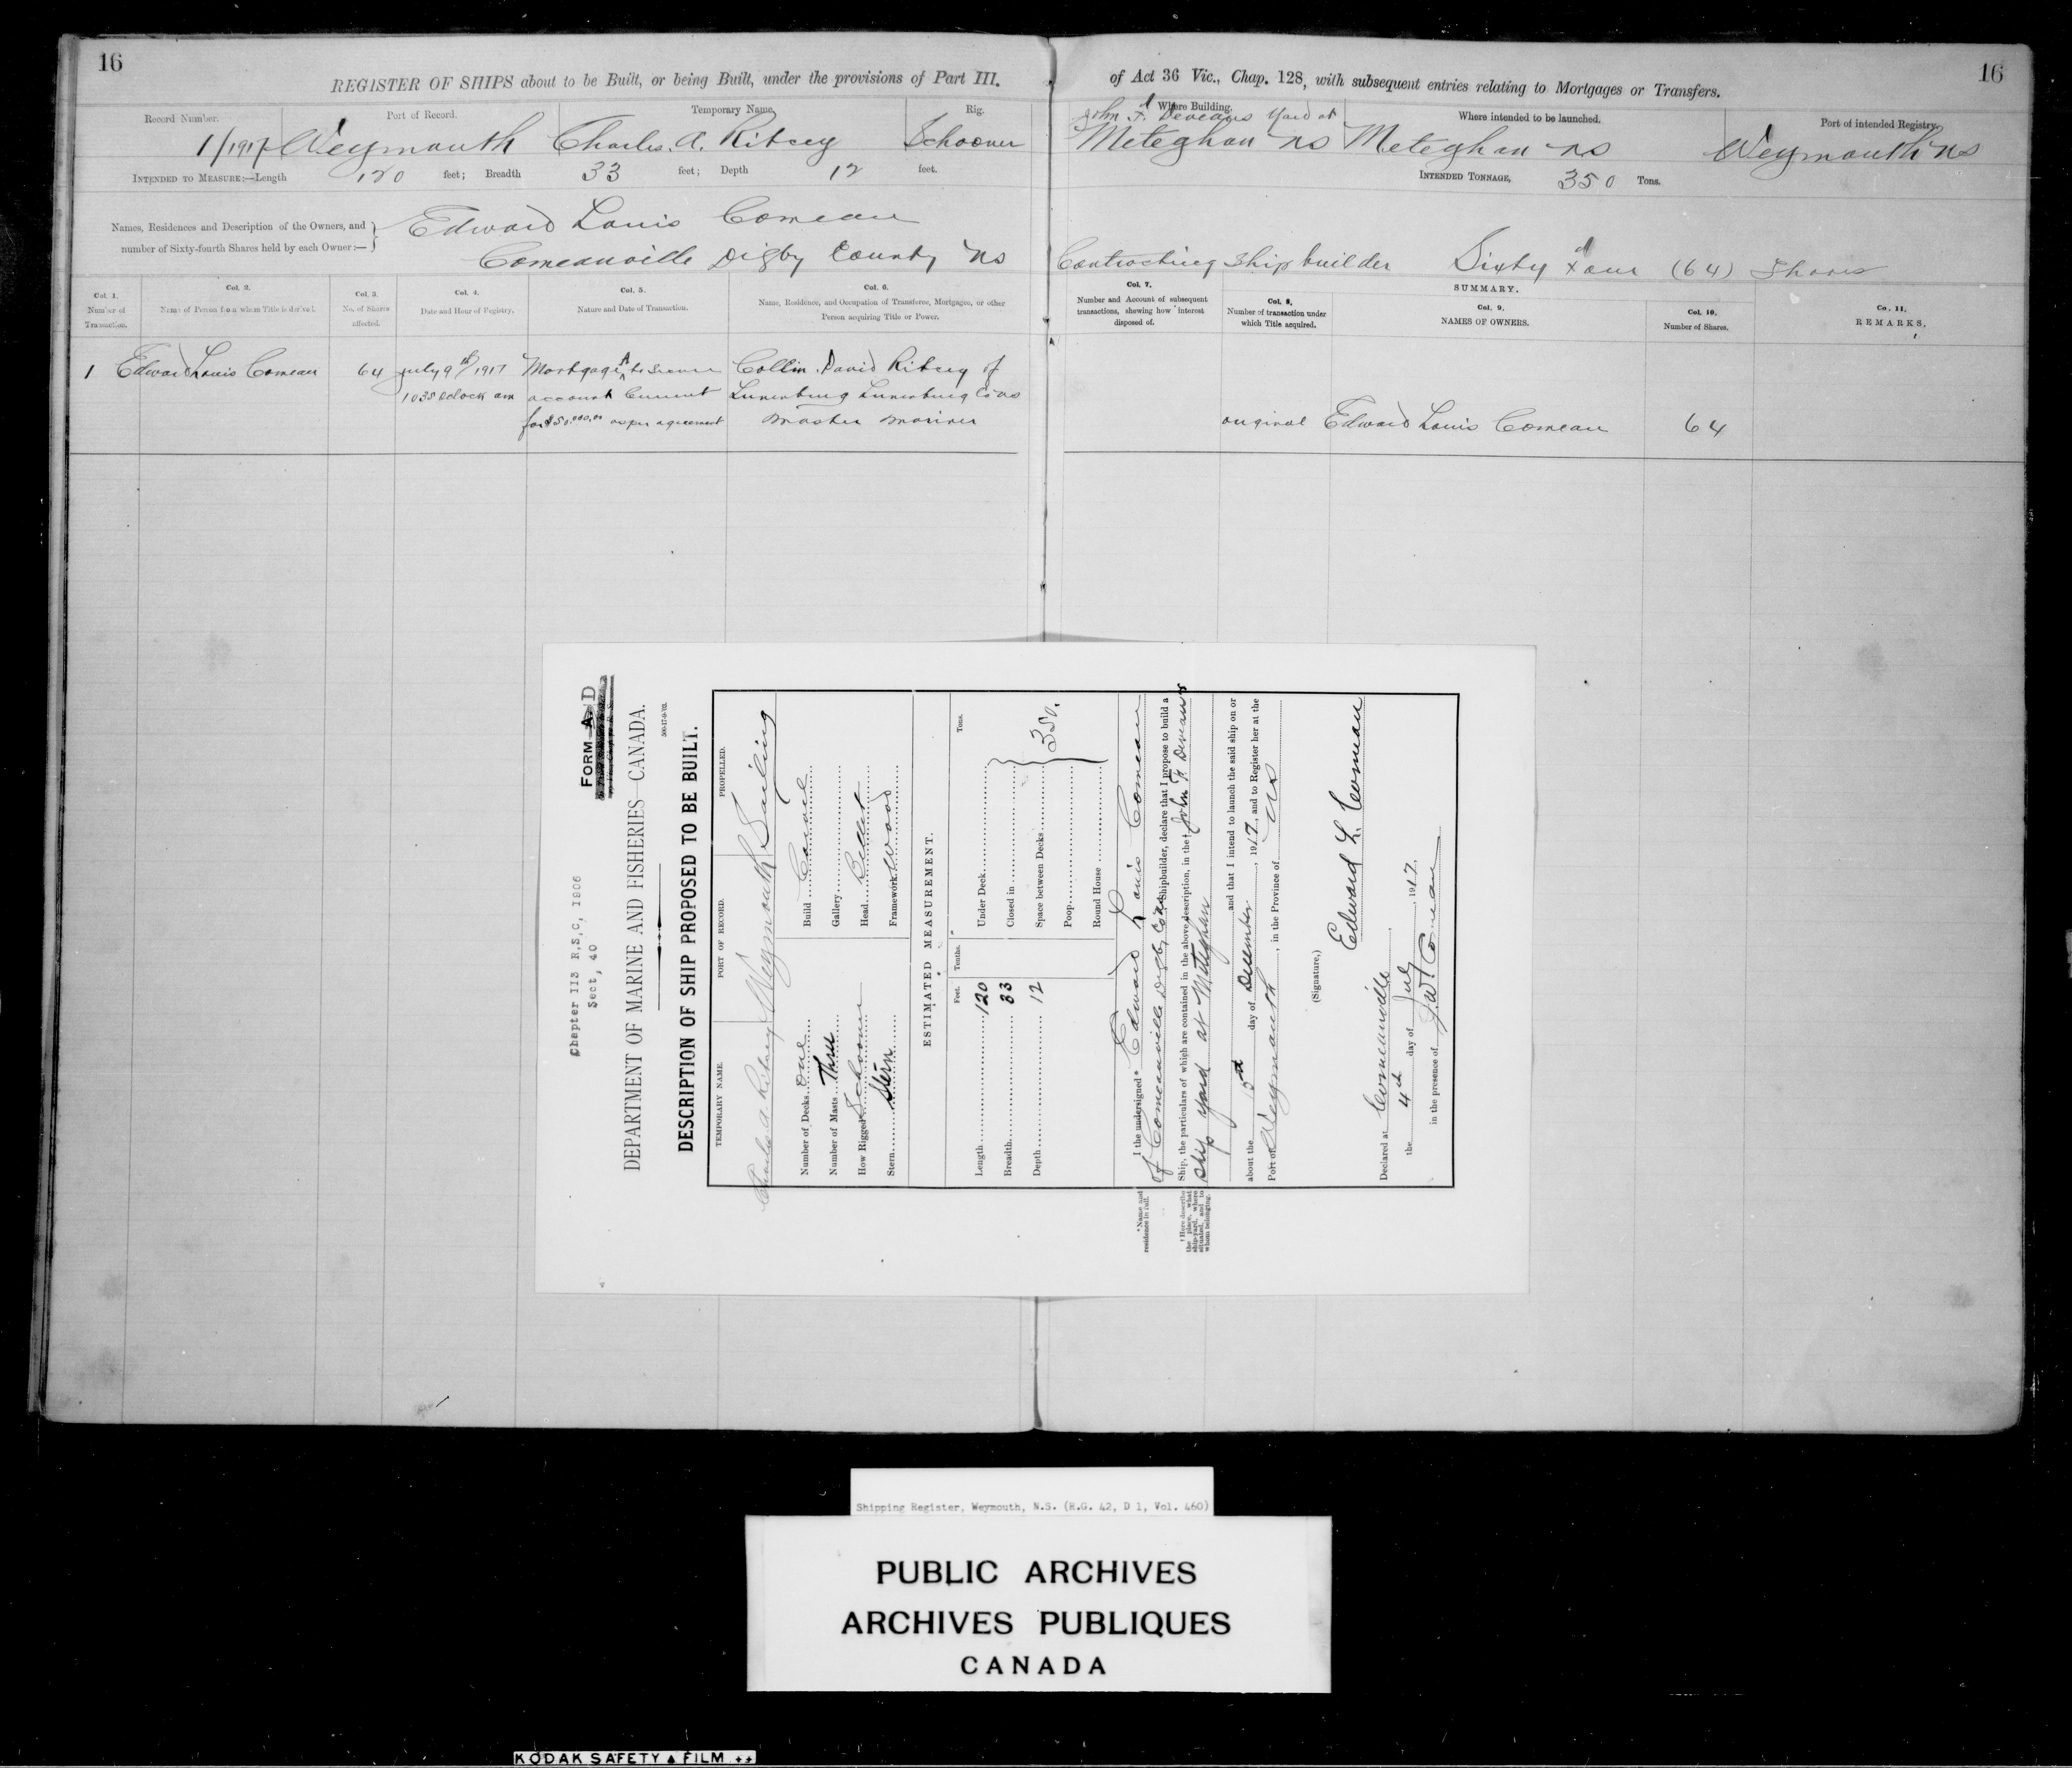 16
REGISTER OF SHIPS about to be Built, or being Built, under the provisions of Part III.
of Act 36 Vic., Chap. 128, with subsequent entries relating to Mortgages or Transfers.
16
Record Number.
1/1917
Port of Record.
Weymouth
Temporary Name.
Charles. A. Ritcey
Rig.
Schooner
Where Building.
John F. Deveaus Yard at
Meteghan NS
Where intended to be launched.
Meteghan NS
Port of intended Registry.
Weymouth NS
INTENDED TO MEASURE:—Length 120 feet; Breadth 33 feet; Depth 12 feet.
INTENDED TONNAGE, 350 Tons.
Names, Residences and Description of the Owners, and
number of Sixty-fourth Shares held by each Owner:—
Edward Louis Comeau
Comeauville Digby County NS
Contracting Ship builder Sixty Four (64) Shares
Col. 1.
Number of
Transaction.
Col. 2.
Name of Person from whom Title is derived.
Col. 3.
No. of Shares
affected.
Col. 4.
Date and Hour of Registry.
Col. 5.
Nature and Date of Transaction.
Col. 6.
Name, Residence, and Occupation of Transferee, Mortgagee, or other
Person acquiring Title or Power.
Col. 7.
Number and Account of subsequent
transactions, shewing how interest
disposed of.
SUMMARY.
Col. 8.
Number of transaction under
which Title acquired.
Col. 9.
NAMES OF OWNERS.
Col. 10.
Number of Shares.
Co. 11.
REMARKS.
1 Edward Louis Comeau 64
July 9th/1917
1035 Oclock am
Mortgage A to secure
account Current
for $50,000.00 as per agreement
Collin. David Ritcey of
Lunenburg Lunenburg Co NS
Master Mariner
original Edward Louis Comeau 64
Chapter 113 R,S,C, 1906
Sect, 40
FORM A. D
DEPARTMENT OF MARINE AND FISHERIES—CANADA.
500-17-9-'03.
DESCRIPTION OF SHIP PROPOSED TO BE BUILT.
TEMPORARY NAME.
Charles A Ritcey
PORT OF RECORD.
Weymouth
PROPELLED.
Sailing
Number of Decks One
Number of Masts Three
How Rigged Schooner
Stern Stern
Build Carvel
Gallery
Head Billet
Framework Wood
ESTIMATED MEASUREMENT.
Feet. Tenths.
Length 120
Breadth 33
Depth 12
Tons.
Under Deck
Closed in
Space between Decks
Poop
Round House
350.
I the undersigned* Edward Louis Comeau
of Comeauville Digby Co NS Shipbuilder, declare that I propose to build a
Ship, the particulars of which are contained in the above description, in the† John F. Deveau's
ship yard at Meteghan
and that I intend to launch the said ship on or
about the 15th day of December, 1917, and to Register her at the
Port of Weymouth, in the Province of NS
(Signature,) Edward L. Comeau
Declared at Comeauville
the 4th day of July, 1917.
in the presence of J.W. Comeau
* Name and
residence in full.
† Here describe
the place, what
ship-yard, where
situated, and to
whom belonging.
Shipping Register, Weymouth, N.S. (R.G. 42, D 1, Vol. 460)
PUBLIC ARCHIVES
ARCHIVES PUBLIQUES
CANADA
KODAK SAFETY FILM